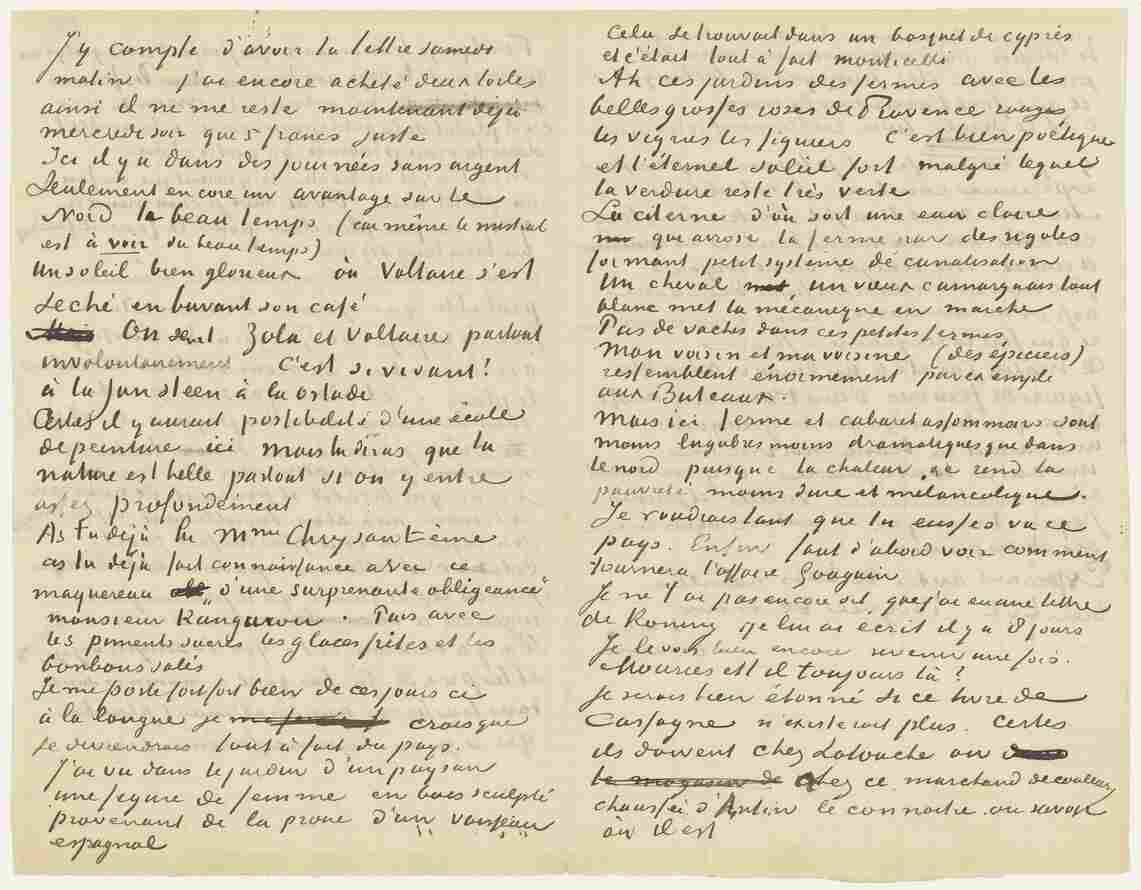 J'y compte d'avoir ta lettre samedi
matin j'ai encore acheté deux toiles
ainsi il ne me reste maintenant déjà
mercredi soir que 5 francs juste
Ici il y a dans des journées sans argent
Seulement encore un avantage sur le
Nord le beau temps (car même le mistral
est à voir du beau temps)
Un soleil bien glorieux où Voltaire s'est
seché en buvant son café
On sent Zola et Voltaire partout
involontairement c'est si vivant!
à la Jan Steen à la Ostade
Certes il y aurait possibilité d'une école
de peinture ici mais tu diras que la
nature est belle partout si on y entre
assez profondément
As tu déjà lu Mme Chrysantème
as tu déjà fait connaissance avec ce
maquereau "d'une surprenante obligeance"
monsieur Kangourou. Puis avec
les piments sucrés les glaces frites et les
bonbons salés
Je me porte fort fort bien de ces jours ci
à la longue je crois que
je deviendrais tout à fait du pays.
J'ai vu dans le jardin d'un paysan
une figure de femme en bois sculpté
provenant de la proue d'un vaisseau
espagnol
Cela se trouvait dans un bosquet de cyprès
et c'était tout à fait monticelli
Ah ces jardins des fermes avec les
belles grosses roses de Provence rouges
les vignes les figuiers C'est bien poétique
et l'éternel soleil fort malgré lequel
la verdure reste très verte
La citerne d'où sort une eau claire
que arrose la ferme par des rigoles
formant petit système de canalisation
Un cheval un vieux camarguais tout
blanc met la mécanique en marche
Pas de vaches dans ces petites fermes
Mon voisin et ma voisine (des épiciers)
ressemblent énormement par exemple
aux Buteaux.
Mais ici ferme et cabaret assommoirs sont
moins lugubres moins dramatiques que dans
le nord puisque la chaleur &c rend la
pauvreté moins dure et mélancolique.
Je voudrais tant que tu eusses vu ce
pays. Enfin faut d'abord voir comment
tournera l'affaire Gauguin
Je ne t'ai pas encore dit que j'ai eu une lettre
de Koning je lui ai écrit il y a 8 jours
Je le vois bien encore revenir une fois.
Mouries est il toujours là?
Je serais bien étonné si ce livre de
Cassagne n'existerait plus. Certes
ils doivent chez Latouche ou
le magasin de chez ce marchand de couleurs
chaussée d'Antin le connaitre ou savoir
où il est